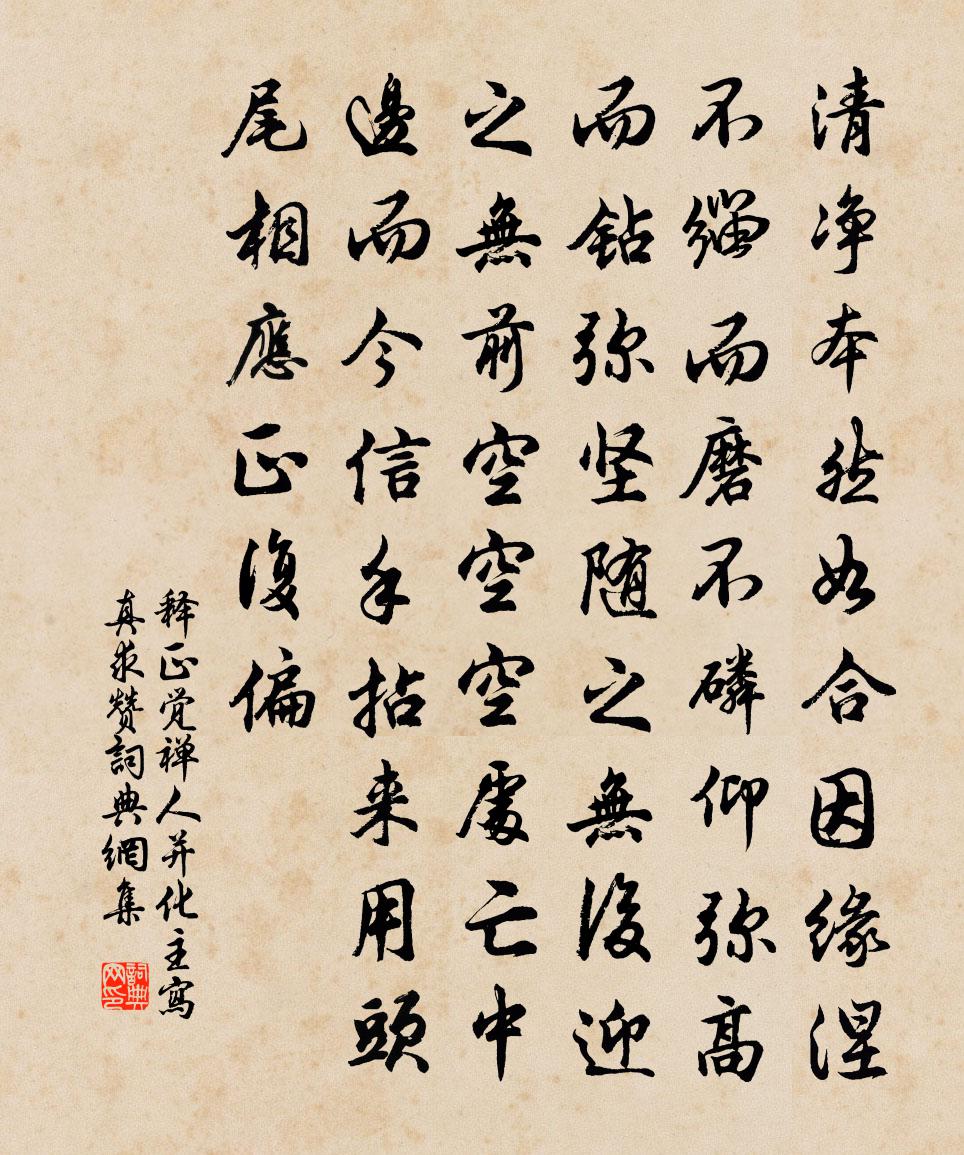 清净本然如合因缘涅
不缁而磨不磷仰弥高
而钻弥坚随之無後迎
之無前空空空處亡中
邊而今信手拈来用頭
尾相應正復偏
释正觉禅人并化主寫
真求赞詞典網集
詞典网印